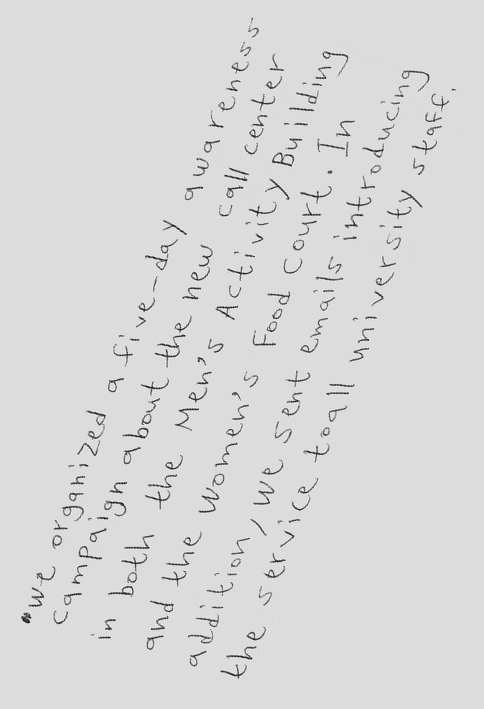 "we organized a five-day awareness
campaign about the new call center
in both the Men's Activity Building
and the women's Food Court. In
addition, we sent emails introducing
the service to all university staff.